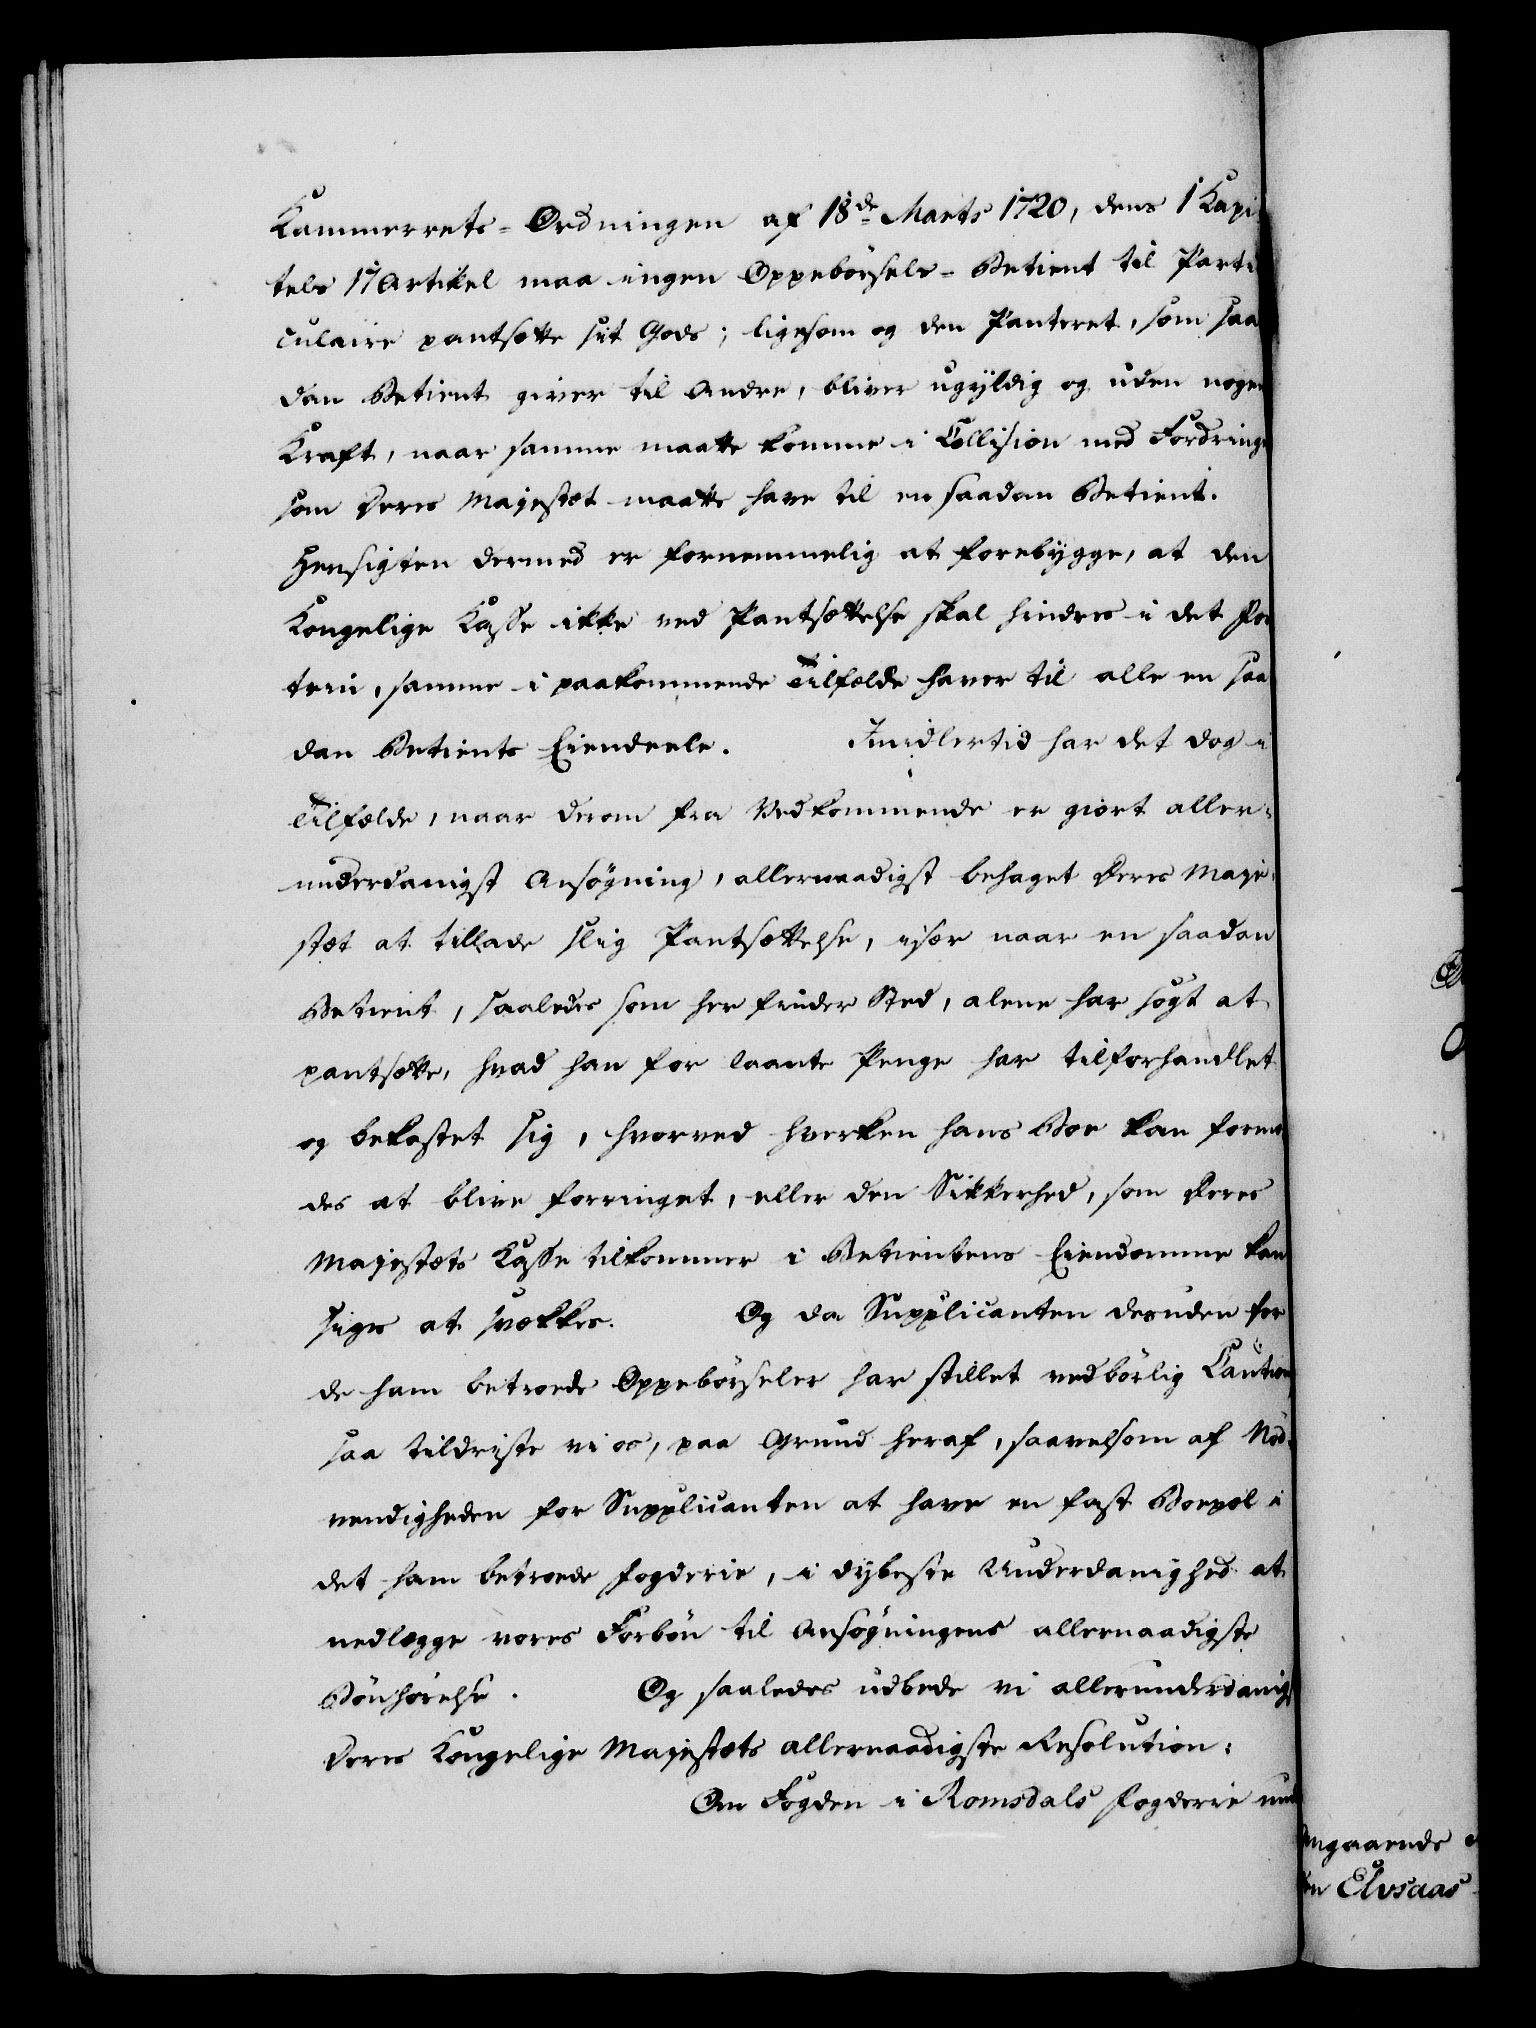 Kammerrets-Ordningen af 18de Marts 1720, dens 1 Kapi
tels 17 Artikel maa ingen Oppebörsels-Betient til Parti
culaire pantsætte sit Gods; ligesom og den Panteret, som saa
dan Betient giver til Andre, bliver ugyldig og uden nogen
Kraft, naar samme maatte komme i Collision med Fordringe
som Deres Majestæt maatte have til en saadan Betient.
Hensigten dermed er fornemmelig at forebygge, at den
Kongelige Kasse ikke ved Pantsættelse skal hindres i det For
trin, samme i paakommende Tilfælde haver til alle en saa
dan Betients Eiendeele. Imidlertid har det dog i
Tilfælde, naar derom fra Vedkommende er giort aller-
underdanigst Ansögning, allernaadigst behaget Deres Maje-
stæt at tillade slig Pantsættelse, især naar en saadan
Betient, saaledes som her finder Sted, alene har sögt at
pantsætte, hvad han for laante Penge har tilforhandlet
og bekostet sig, hvorved hverken hans Boe kan formo
des at blive forringet, eller den Sikkerhed, som Deres
Majestæts Kasse tilkommer i Betientens Eiendomme kan
siges at svækkes. Og da Supplicanten desuden for
de ham betroede Oppebörseler har stillet vedbörlig Caution
saa tildriste vi os, paa Grund heraf, saavelsom af Nöd-
vendigheden for Supplicanten at have en fast Boepæl i
det ham betroede Fogderie, i dybeste Underdanighed at
nedlægge vores Forbön til Ansögningens allernaadigste
Bönhörelse. Og saaledes udbede vi allerunderdanigst
Deres Kongelige Majestæts allernaadigste Resolution:
Om Fogden i Romsdals Fogderie
ngaaende
Elvsaas